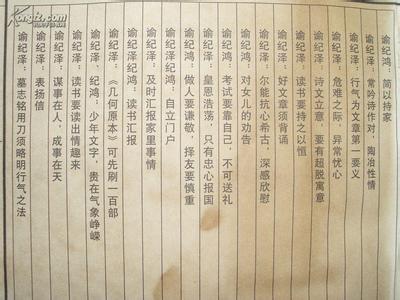 谕纪鸿：简以持家
谕纪泽：常吟诗作对，陶冶性情
谕纪泽：行气为文章第一要义
谕纪泽：危难之际，异常忧心
谕纪泽：诗文立意，要有超脱寓意
谕纪泽：读书要持之以恒
谕纪泽：好文章须背诵
谕纪泽：尔能抗心希古，深感欣慰
谕纪泽：对女儿的劝告
谕纪鸿：考试要靠自己，不可送礼
谕纪泽：皇恩浩荡，只有忠心报国
谕纪鸿：做人要谦敬，择友要慎重
谕纪泽纪鸿：自立门户
谕纪泽：及时汇报家里事情
谕纪泽纪鸿：读书汇报
谕纪泽：《几何原本》可先刷一百部
谕纪泽、纪鸿：少年文字，贵在气象峥嵘
谕纪泽：读书要读出情趣来
谕纪泽：谋事在人，成事在天
谕纪泽：表扬信
谕纪泽：墓志铭用刀须略明行气之法